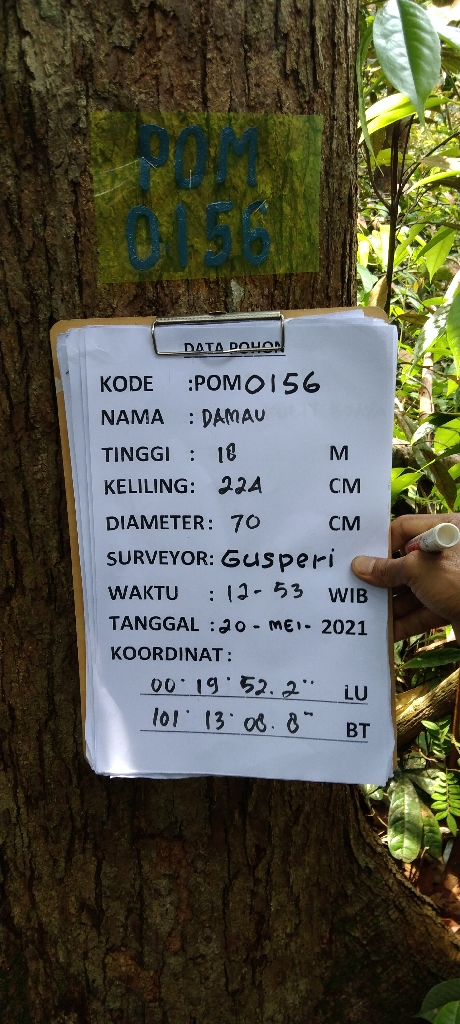 POM
0156
DATA POHON
KODE :POM 0156
NAMA : DAMAU
TINGGI : 18 M
KELILING: 224 CM
DIAMETER: 70 CM
SURVEYOR: Gusperi
WAKTU : 12-53 WIB
TANGGAL :20-MEI-2021
KOORDINAT:
00° 19' 52.2" LU
101° 13' 08.8" BT